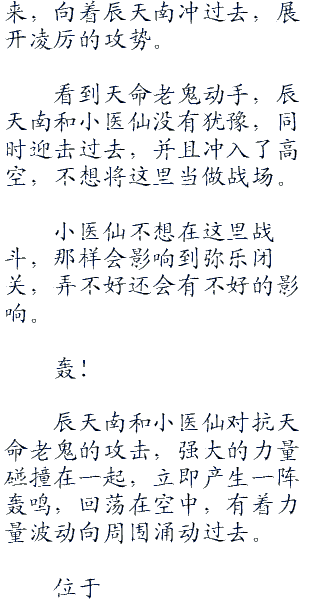 来，向着辰天南冲过去，展
开凌厉的攻势。
看到天命老鬼动手，辰
天南和小医仙没有犹豫，同
时迎击过去，并且冲入了高
空，不想将这里当做战场。
小医仙不想在这里战
斗，那样会影响到弥乐闭
关，弄不好还会有不好的影
响。
轰！
辰天南和小医仙对抗天
命老鬼的攻击，强大的力量
碰撞在一起，立即产生一阵
轰鸣，回荡在空中，有着力
量波动向周围涌动过去。
位于